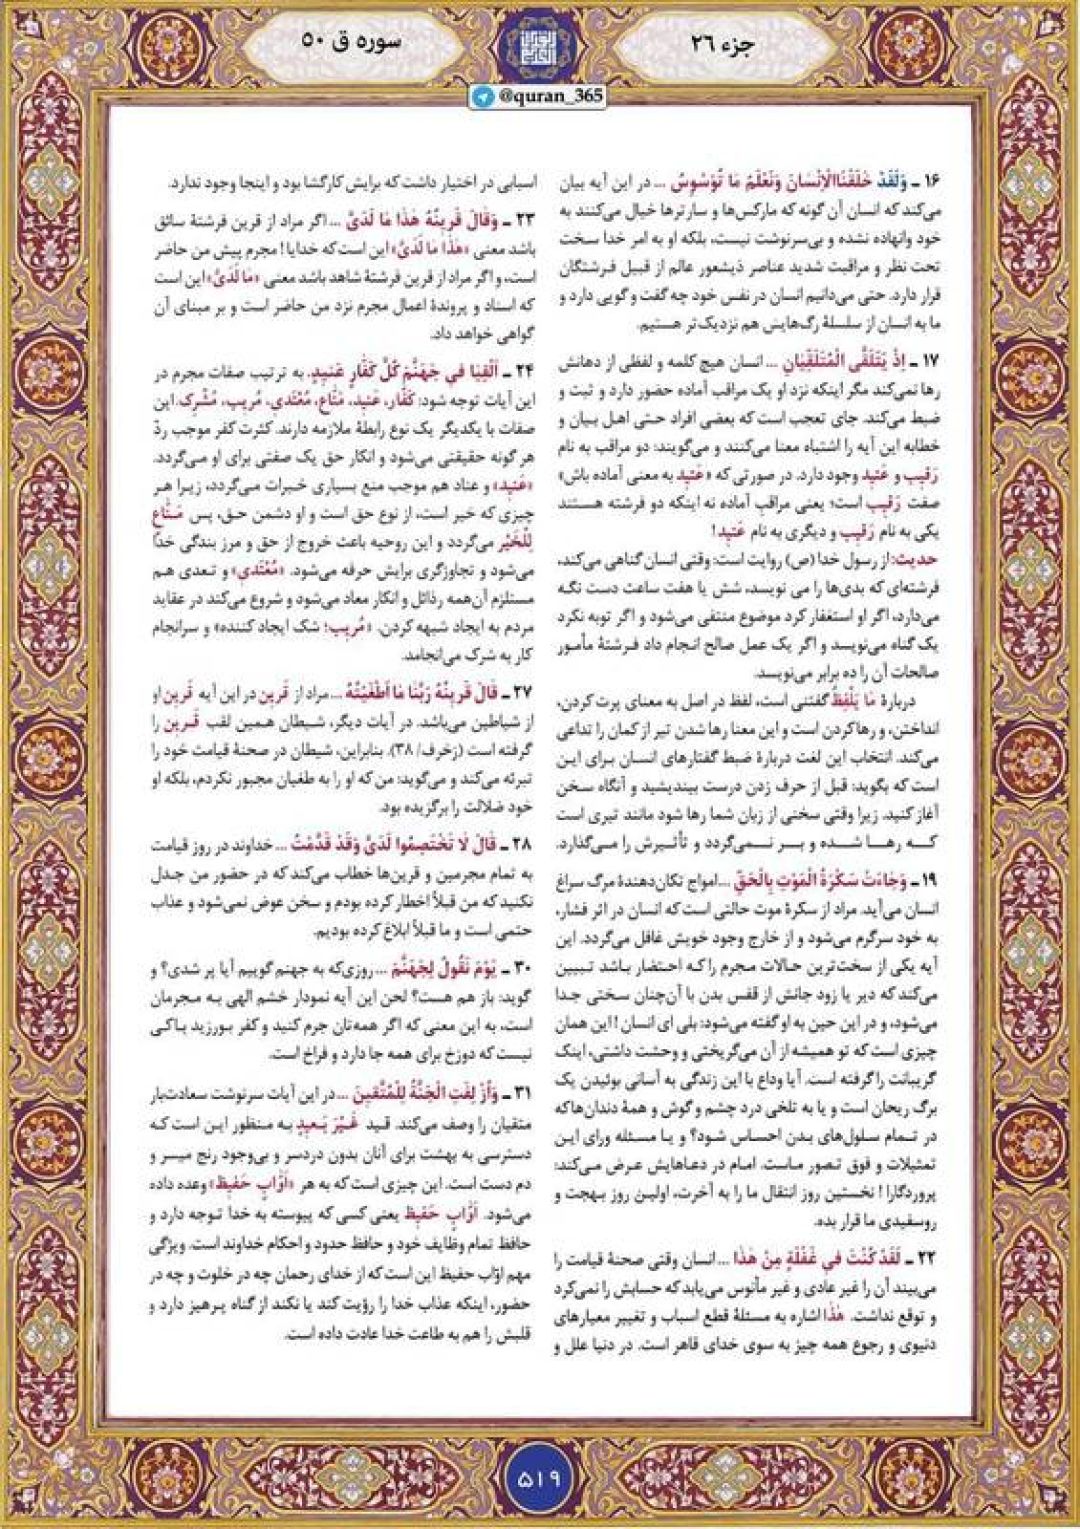 جزء ۲۶
سوره ق ۵۰
@quran_365
۱۶ ـ وَلَقَدْ خَلَقْنَاالْاِنْسَانَ وَنَعْلَمُ مَا تُوَسْوِسُ ... در این آیه بیان
می‌کند که انسان آن گونه که مارکس‌ها و سارترها خیال می‌کنند به
خود وانهاده نشده و بی‌سرنوشت نیست، بلکه او به امر خدا سخت
تحت نظر و مراقبت شدید عناصر ذیشعور عالم از قبیل فرشتگان
قرار دارد. حتی می‌دانیم انسان در نفس خود چه گفت و گویی دارد و
ما به انسان از سلسلهٔ رگ‌هایش هم نزدیک‌تر هستیم.
۱۷ ـ اِذْ یَتَلَقَّی الْمُتَلَقِّیَانِ ... انسان هیچ کلمه و لفظی از دهانش
رها نمی‌کند مگر اینکه نزد او یک مراقب آماده حضور دارد و ثبت و
ضبط می‌کند. جای تعجب است که بعضی افراد حتی اهل بیان و
خطابه این آیه را اشتباه معنا می‌کنند و می‌گویند: دو مراقب به نام
رَقیب و عَتید وجود دارد. در صورتی که «عَتید به معنی آماده باش»
صفت رَقیب است؛ یعنی مراقب آماده نه اینکه دو فرشته هستند
یکی به نام رَقیب و دیگری به نام عَتید!
حدیث: از رسول خدا (ص) روایت است: وقتی انسان گناهی می‌کند،
فرشته‌ای که بدی‌ها را می نویسد، شش یا هفت ساعت دست نگه
می‌دارد، اگر او استغفار کرد موضوع منتفی می‌شود و اگر توبه نکرد
یک گناه می‌نویسد و اگر یک عمل صالح انجام داد فرشتهٔ مأمور
صالحات آن را ده برابر می‌نویسد.
دربارهٔ مَا یَلْفِظُ گفتنی است، لفظ در اصل به معنای پرت کردن،
انداختن، و رهاکردن است و این معنا رها شدن تیر از کمان را تداعی
می‌کند. انتخاب این لغت دربارهٔ ضبط گفتارهای انسان برای این
است که بگوید: قبل از حرف زدن درست بیندیشید و آنگاه سخن
آغاز کنید. زیرا وقتی سخنی از زبان شما رها شود مانند تیری است
کـه رهـا شـده و بـر نـمی‌گردد و تأثیرش را مـی‌گذارد.
۱۹ ـ وَجَاءَتْ سَکْرَةُ الْمَوْتِ بِالْحَقِّ ...امواج تکان‌دهندهٔ مرگ سراغ
انسان می‌آید. مراد از سکرهٔ موت حالتی است که انسان در اثر فشار،
به خود سرگرم می‌شود و از خارج وجود خویش غافل می‌گردد. این
آیه یکی از سخت‌ترین حالات مجرم را که احتضار باشد تبیین
می‌کند که دیر یا زود جانش از قفس بدن با آن‌چنان سختی جدا
می‌شود، و در این حین به او گفته می‌شود: بلی ای انسان! این همان
چیزی است که تو همیشه از آن می‌گریختی و وحشت داشتی، اینک
گریبانت را گرفته است. آیا وداع با این زندگی به آسانی بوئیدن یک
برگ ریحان است و یا به تلخی درد چشم و گوش و همهٔ دندان‌ها که
در تمام سلول‌های بدن احساس شود؟ و یا مسئله ورای این
تمثیلات و فوق تصور ماست. امام در دعاهایش عرض می‌کند:
پروردگارا! نخستین روز انتقال ما را به آخرت، اولین روز بهجت و
روسفیدی ما قرار بده.
۲۲ ـ لَقَدْ کُنْتَ فی غَفْلَةٍ مِنْ هٰذَا ...انسان وقتی صحنهٔ قیامت را
می‌بیند آن را غیر عادی و غیر مأنوس می‌یابد که حسابش را نمی‌کرد
و توقع نداشت. هٰذَا اشاره به مسئلهٔ قطع اسباب و تغییر معیارهای
دنیوی و رجوع همه چیز به سوی خدای قاهر است. در دنیا علل و
اسبابی در اختیار داشت که برایش کارگشا بود و اینجا وجود ندارد.
۲۳ ـ وَقَالَ قَرینُهُ هٰذَا مَا لَدَیَّ ...اگر مراد از قرین فرشتهٔ سائق
باشد معنی «هٰذَا مَا لَدَیَّ» این است که خدایا! مجرم پیش من حاضر
است، و اگر مراد از قرین فرشتهٔ شاهد باشد معنی «مَا لَدَیَّ» این است
که اسناد و پروندهٔ اعمال مجرم نزد من حاضر است و بر مبنای آن
گواهی خواهد داد.
۲۴ ـ اَلْقِیَا فی جَهَنَّمَ کُلَّ کَفَّارٍ عَنیدٍ. به ترتیب صفات مجرم در
این آیات توجه شود: کَفَّار، عَنید، مَنَّاع، مُعْتَدی، مُریب، مُشْرِک: این
صفات با یکدیگر یک نوع رابطهٔ ملازمه دارند. کثرت کفر موجب ردّ
هر گونه حقیقتی می‌شود و انکار حق یک صفتی برای او می‌گردد.
«عَنید» و عناد هم موجب منع بسیاری خیرات می‌گردد، زیرا هر
چیزی که خیر است، از نوع حق است و او دشمن حق، پس مَنَّاعٍ
لِلْخَیْرِ می‌گردد و این روحیه باعث خروج از حق و مرز بندگی خدا
می‌شود و تجاوزگری برایش حرفه می‌شود. «مُعْتَدی» و تعدی هم
مستلزم آن‌همه رذائل و انکار معاد می‌شود و شروع می‌کند در عقاید
مردم به ایجاد شبهه کردن. «مُریب؛ شک ایجاد کننده» و سرانجام
کار به شرک می‌انجامد.
۲۷ ـ قَالَ قَرینُهُ رَبَّنَا مَا اَطْغَیْتُهُ ...مراد از قَرین در این آیه قَرینِ او
از شیاطین می‌باشد. در آیات دیگر، شیطان همین لقب قَرین را
گرفته است (زخرف/ ۳۸). بنابراین، شیطان در صحنهٔ قیامت خود را
تبرئه می‌کند و می‌گوید: من که او را به طغیان مجبور نکردم، بلکه او
خود ضلالت را برگزیده بود.
۲۸ ـ قَالَ لَا تَخْتَصِمُوا لَدَیَّ وَقَدْ قَدَّمْتُ ... خداوند در روز قیامت
به تمام مجرمین و قرین‌ها خطاب می‌کند که در حضور من جدل
نکنید که من قبلاً اخطار کرده بودم و سخن عوض نمی‌شود و عذاب
حتمی است و ما قبلاً ابلاغ کرده بودیم.
۳۰ ـ یَوْمَ نَقُولُ لِجَهَنَّمَ ...روزی‌که به جهنم گوییم آیا پر شدی؟ و
گوید: باز هم هست؟ لحن این آیه نمودار خشم الهی به مجرمان
است، به این معنی که اگر همه‌تان جرم کنید و کفر بورزید باکی
نیست که دوزخ برای همه جا دارد و فراخ است.
۳۱ ـ وَاُزْلِفَتِ الْجَنَّةُ لِلْمُتَّقینَ ...در این آیات سرنوشت سعادتبار
متقیان را وصف می‌کند. قید غَیْرَ بَعیدٍ به منظور این است که
دسترسی به بهشت برای آنان بدون دردسر و بی‌وجود رنج میسر و
دم دست است. این چیزی است که به هر «اَوَّابٍ حَفیظٍ» وعده داده
می‌شود. اَوَّابٍ حَفیظٍ یعنی کسی که پیوسته به خدا توجه دارد و
حافظ تمام وظایف خود و حافظ حدود و احکام خداوند است. ویژگی
مهم اوّاب حفیظ این است که از خدای رحمان چه در خلوت و چه در
حضور، اینکه عذاب خدا را رؤیت کند یا نکند از گناه پرهیز دارد و
قلبش را هم به طاعت خدا عادت داده است.
۵۱۹